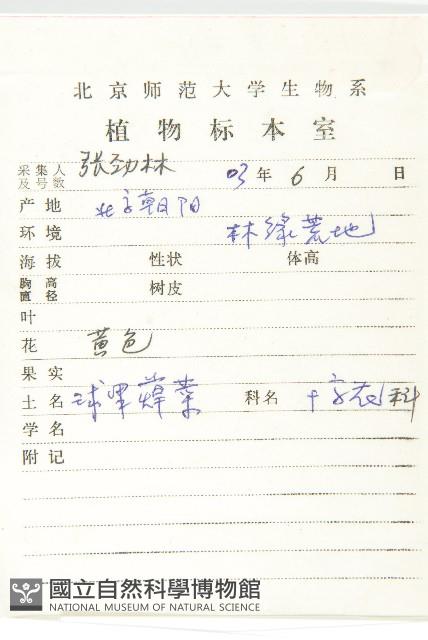 北京师范大学生物系
植物标本室
采集人及号数 张劲林 03年6月 日
产地 北京朝阳
环境 林缘荒地
海拔 性状 体高
胸高直径 树皮
叶
花 黄色
果实
土名 球果蔊菜 科名 十字花科
学名
附记
國立自然科學博物館
NATIONAL MUSEUM OF NATURAL SCIENCE